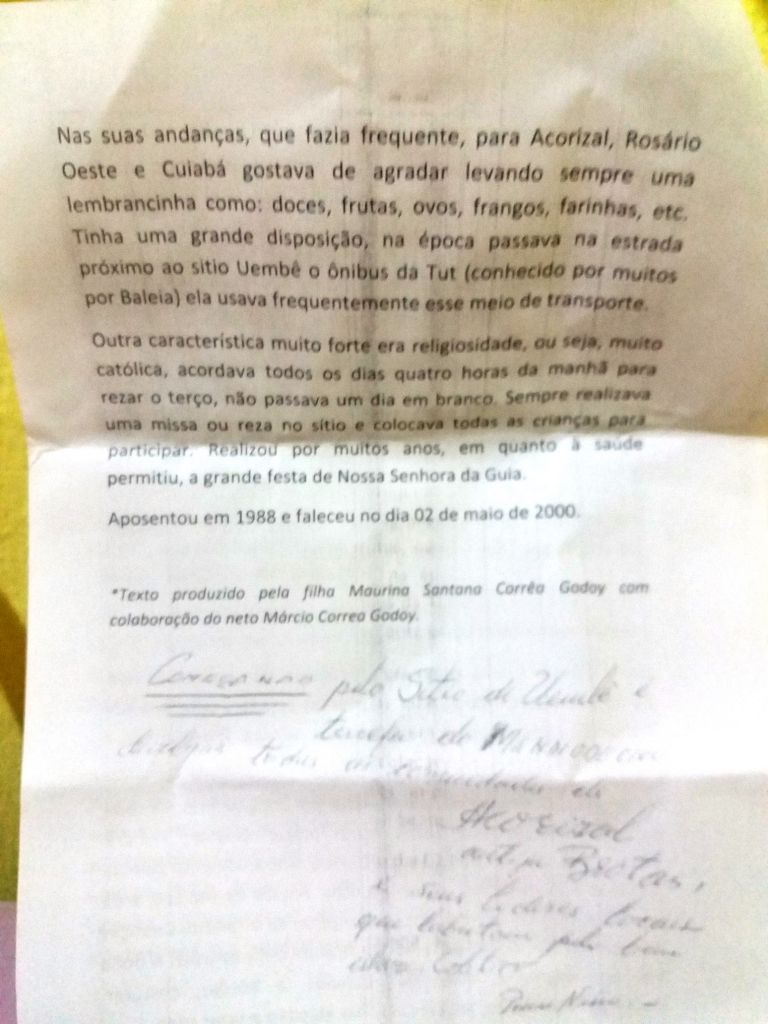 Nas suas andanças, que fazia frequente, para Acorizal, Rosário
Oeste e Cuiabá gostava de agradar levando sempre uma
lembrancinha como: doces, frutas, ovos, frangos, farinhas, etc.
Tinha uma grande disposição, na época passava na estrada
próximo ao sitio Uembê o ônibus da Tut (conhecido por muitos
por Baleia) ela usava frequentemente esse meio de transporte.
Outra característica muito forte era religiosidade, ou seja, muito
católica, acordava todos os dias quatro horas da manhã para
rezar o terço, não passava um dia em branco. Sempre realizava
uma missa ou reza no sítio e colocava todas as crianças para
participar. Realizou por muitos anos, em quanto à saúde
permitiu, a grande festa de Nossa Senhora da Guia.
Aposentou em 1988 e faleceu no dia 02 de maio de 2000.
*Texto produzido pela filha Maurina Santana Corrêa Godoy com
colaboração do neto Márcio Correa Godoy.
Começando pelo Sitio de Uembê e
de
todas as comunidades de
Acorizal
antiga Brotas,
e seus lideres locais
que pelo bem